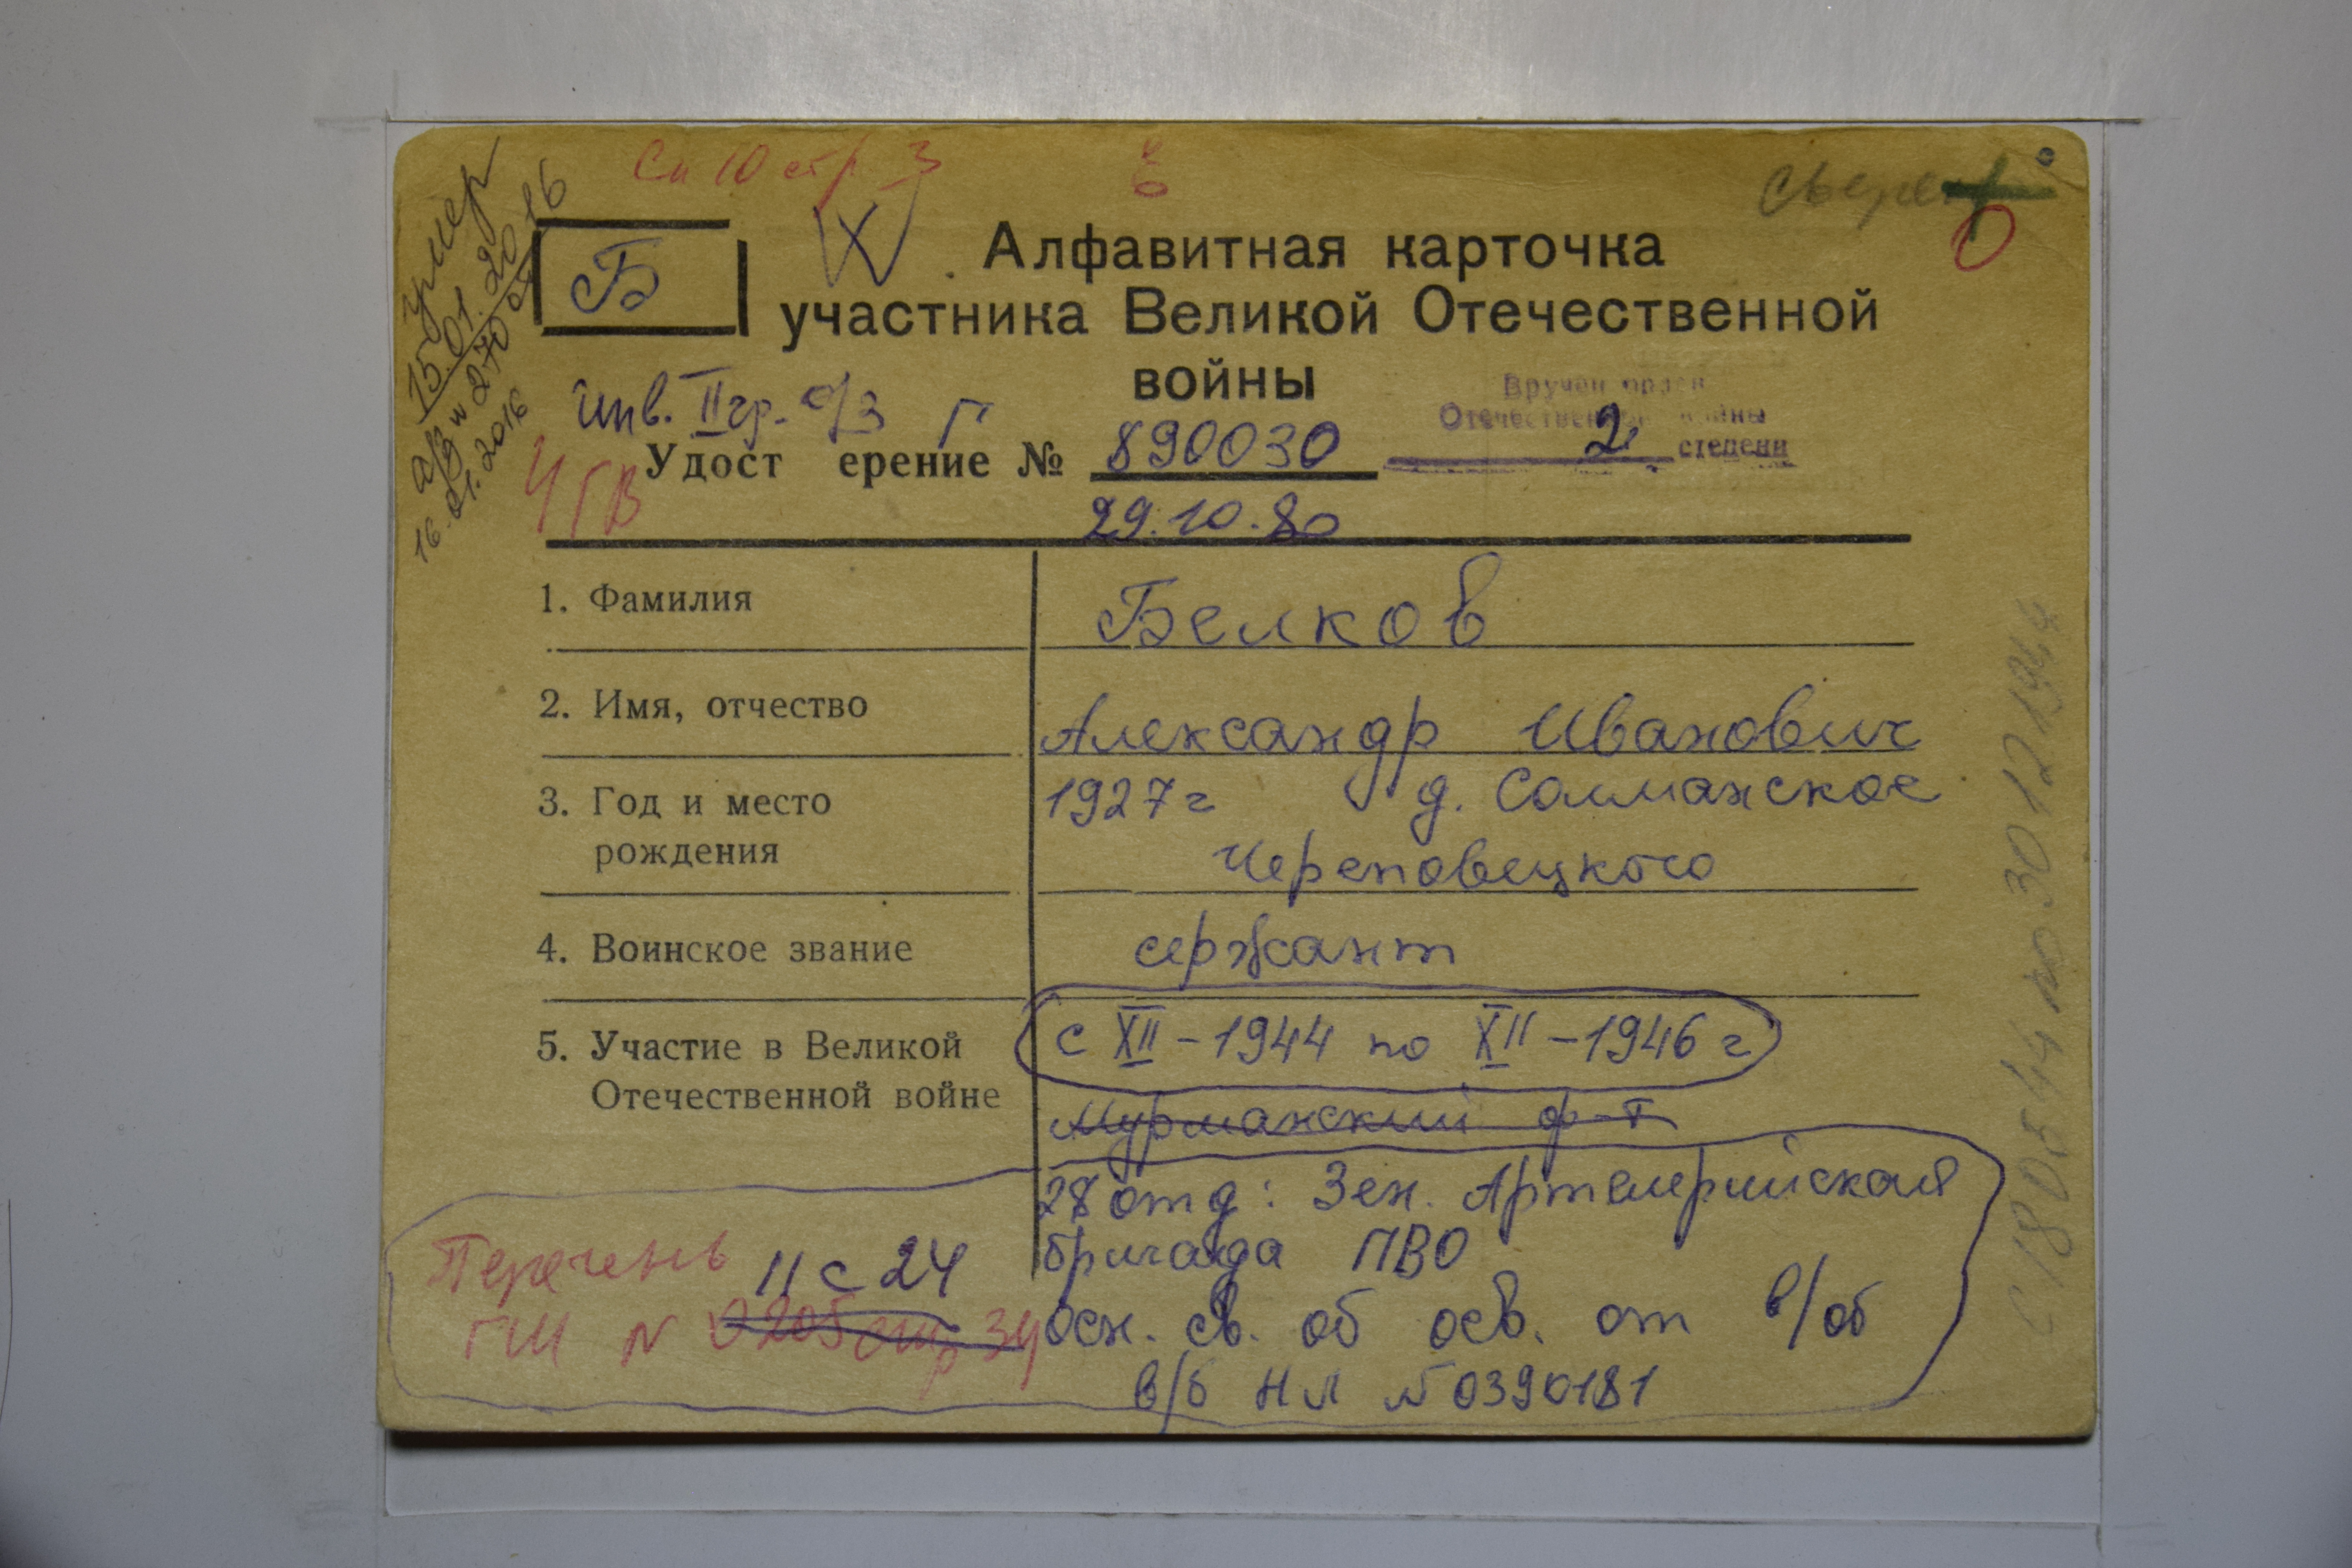 умер
15.01.2016
а/з N 270 от
16.01.2016
Сп 10 стр 3
Б
Алфавитная карточка
участника Великой Отечественной
войны
инв. II гр. о/з Г
Вручен орден
Отечественной войны
2 степени
Удост ерение № 890030
29.10.80
1. Фамилия
Белков
2. Имя, отчество
Александр Иванович
3. Год и место
рождения
1927 г д. Солманское
Череповецкого
4. Воинское звание
сержант
5. Участие в Великой
Отечественной войне
с XII – 1944 по XII – 1946 г
Мурманский ф-т
28 отд: Зен. Артилерийская
бригада ПВО
осн. св. об осв. от в/об
в/б НЛ № 0390181
Перечень 11 с 24
ГШ N 0205 стр 34
с 18 05 44 по 30 12 1944